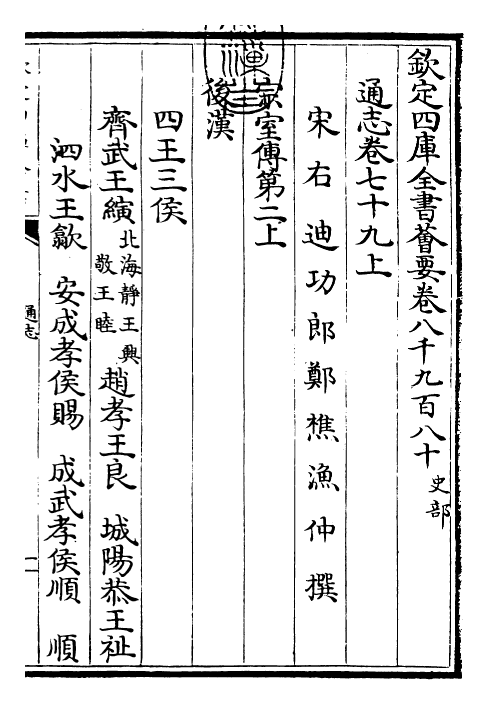 欽定四庫全書薈要卷八千九百八十 史部
通志卷七十九上
宋右迪功郎鄭樵漁仲撰
宗室傳第二上
後漢
四王三侯
齊武王縯 北海靜王興 敬王睦 趙孝王良 城陽恭王祉
泗水王歙 安成孝侯賜 成武孝侯順 順
通志